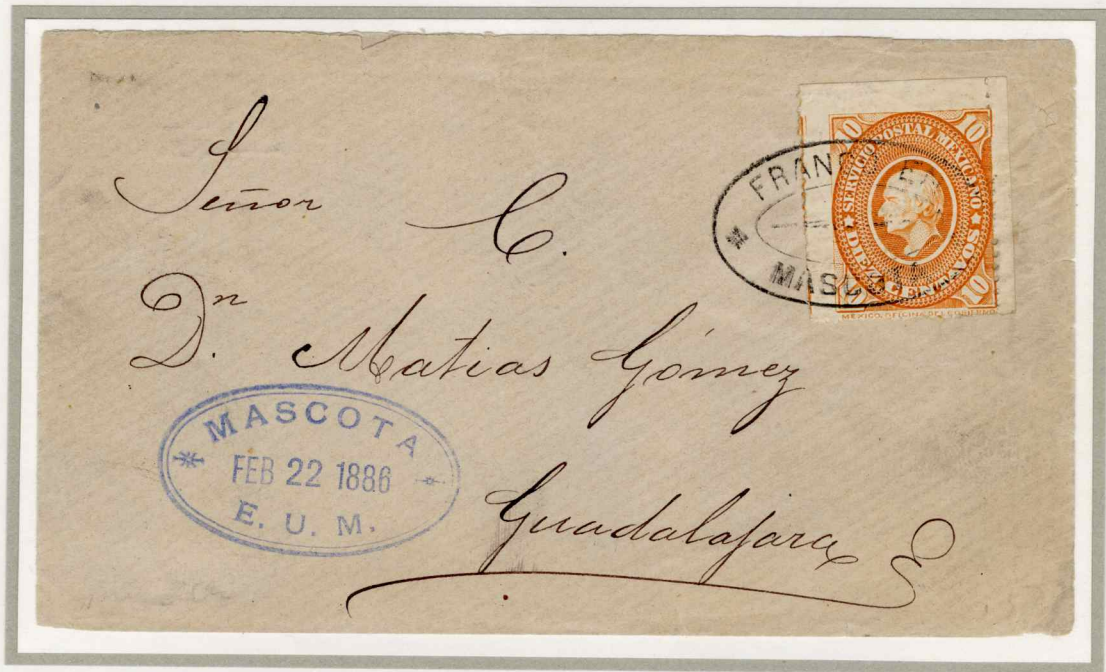 Señor C.
Dn. Matias Gómez
Guadalajara
MASCOTA
FEB 22 1886
E. U. M.
10 10
SERVICIO POSTAL MEXICANO
DIEZ CENTAVOS
10 10
MEXICO. OFICINA DEL GOBIERNO